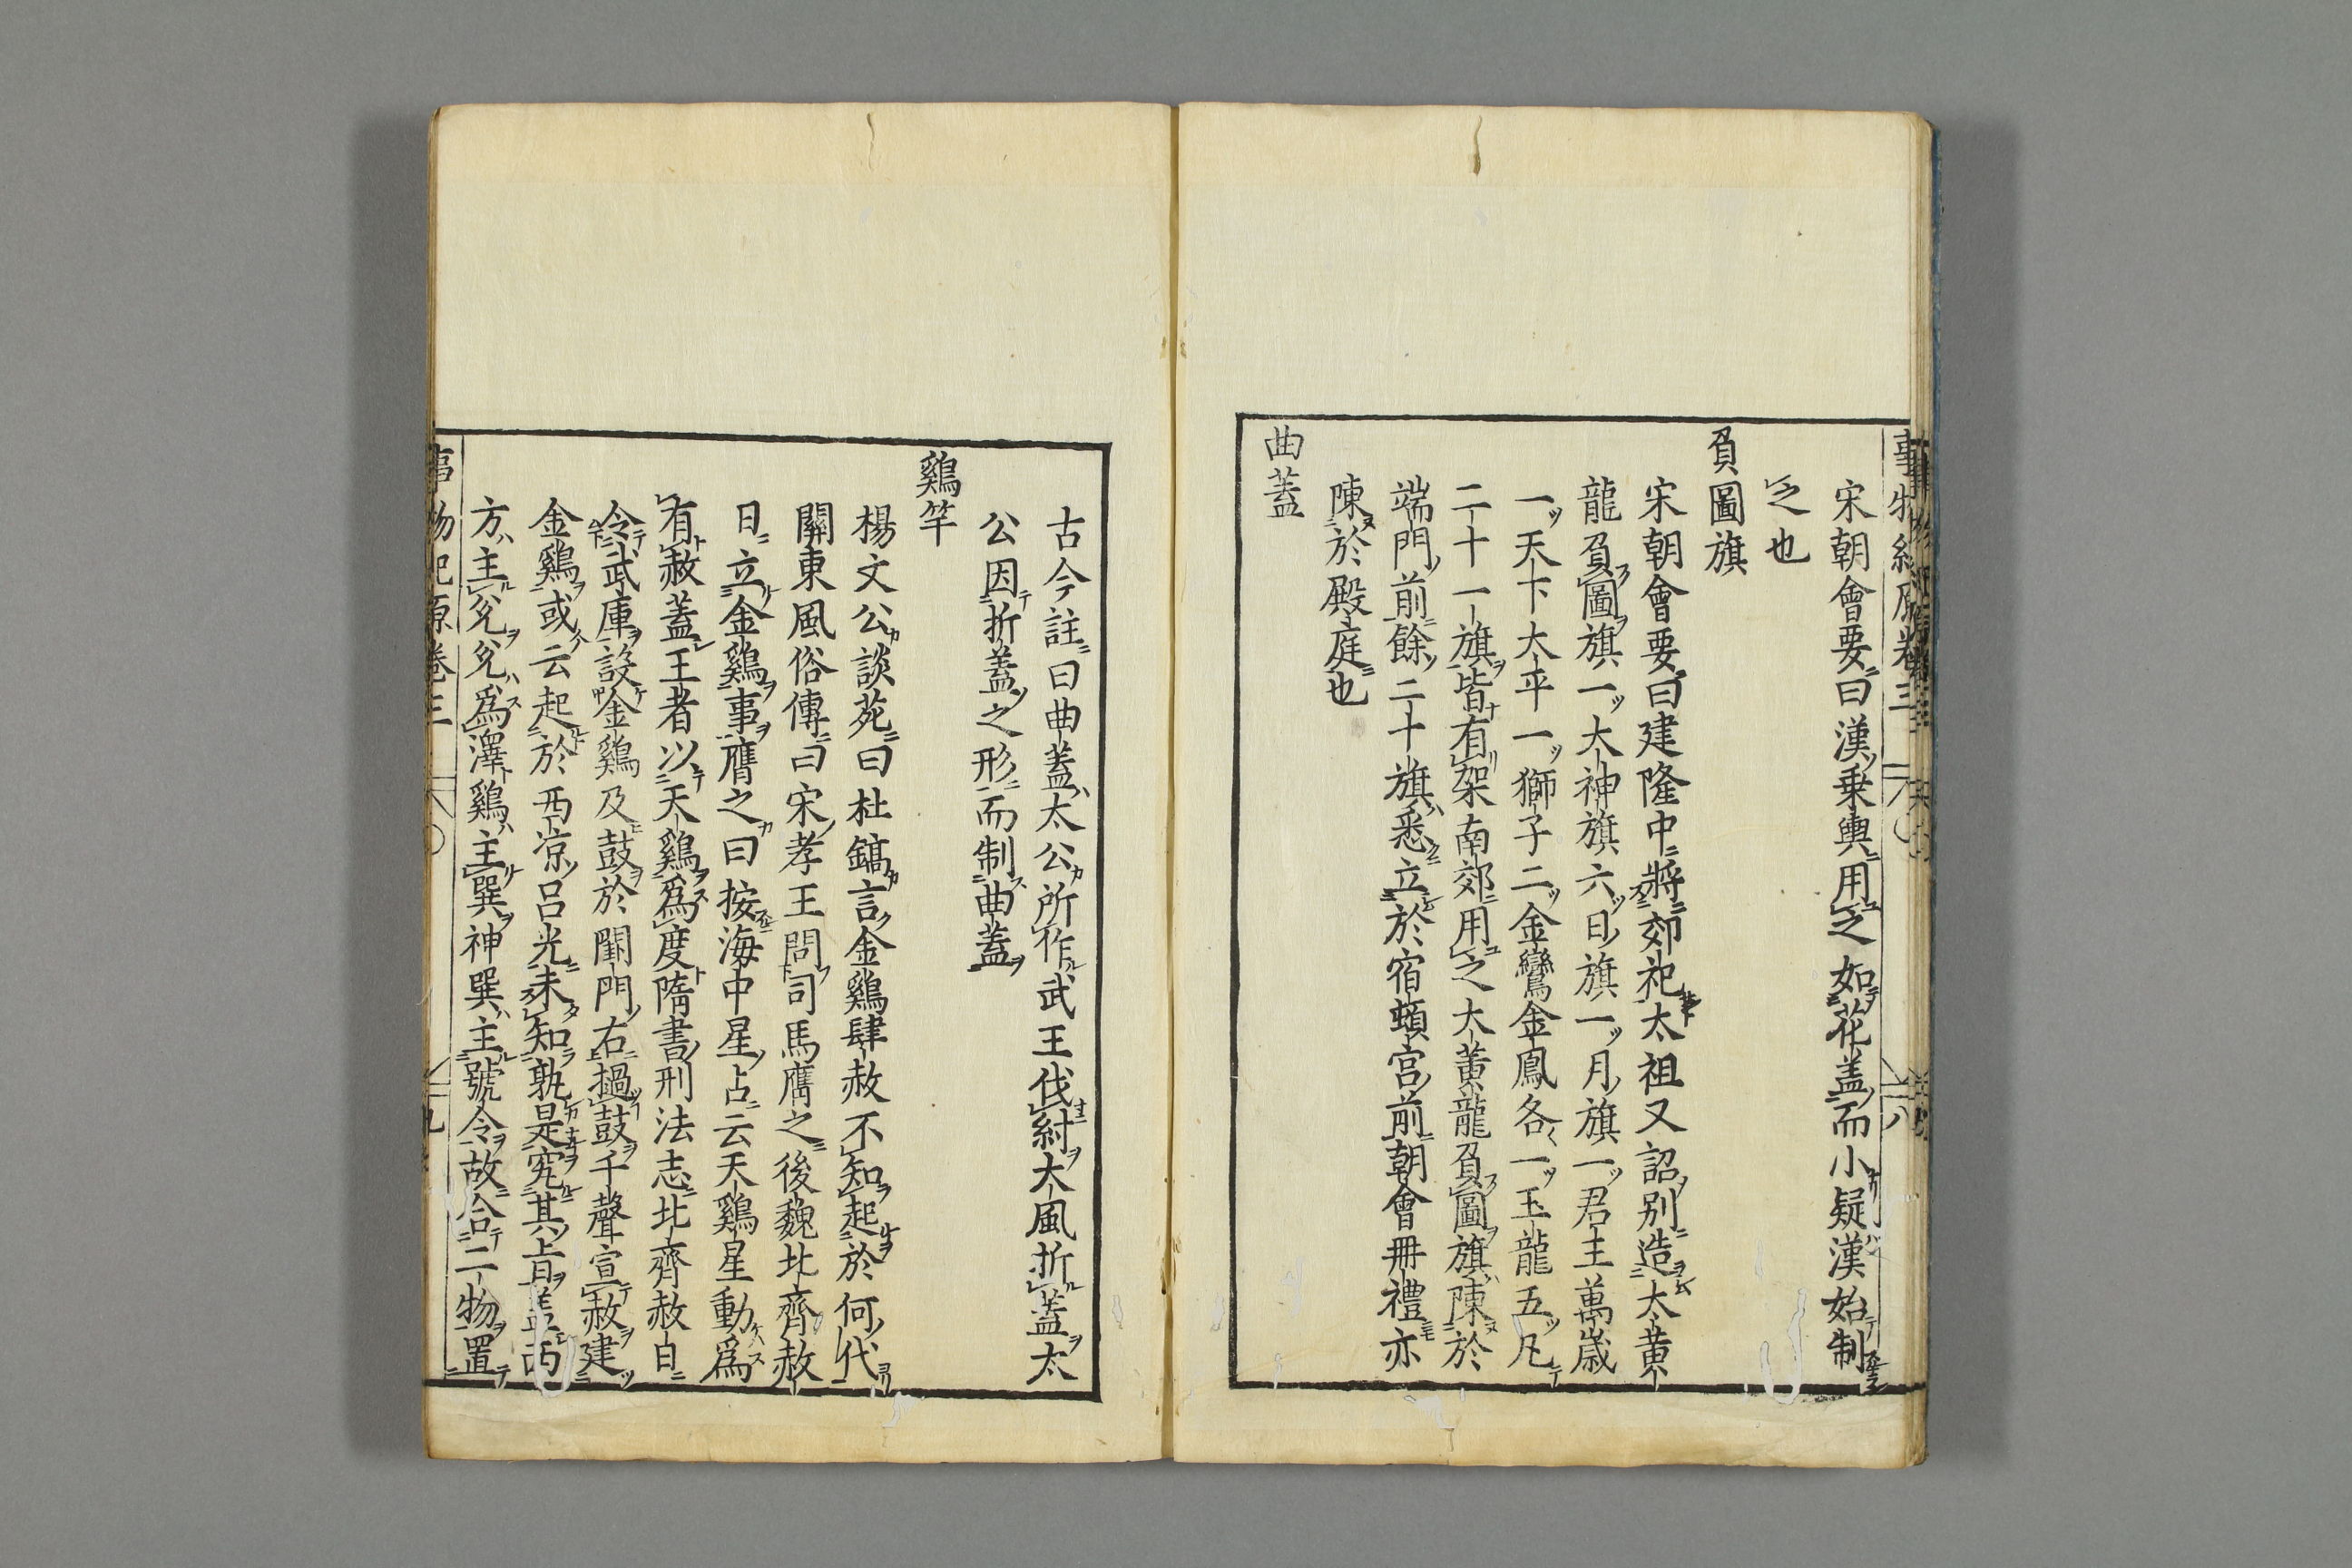 事物紀原卷三 八
宋朝會要曰漢乗輿用之如花盖而小疑漢始制
之也
負圖旗
宋朝會要曰建隆中將郊祀太祖又詔别造太黄
龍負圖旗一大神旗六日旗一月旗一君主萬歲
一天下太平一獅子二金鸞金鳳各一玉龍五凡
二十一旗皆有架南郊用之大黄龍負圖旗陳於
端門前餘二十旗悉立於宿頓宫前朝會冊禮亦
陳於殿庭也
曲蓋
古今註曰曲蓋太公所作武王伐紂大風折蓋太
公因折蓋之形而制曲蓋
鷄竿
楊文公談苑曰杜鎬言金鷄肆赦不知起於何代
關東風俗傳曰宋孝王問司馬膺之後魏北齊赦
日立金鷄事膺之曰按海中星占云天鷄星動爲
有赦蓋王者以天鷄爲度隋書刑法志北齊赦日
令武庫設金鷄及鼓於閶門右撾鼓千聲宣赦建
金鷄或云起於西凉吕光未知孰是究其旨盖西
方主兊兊爲澤鷄主巽神巽主號令故合二物置
事物紀原卷三 九